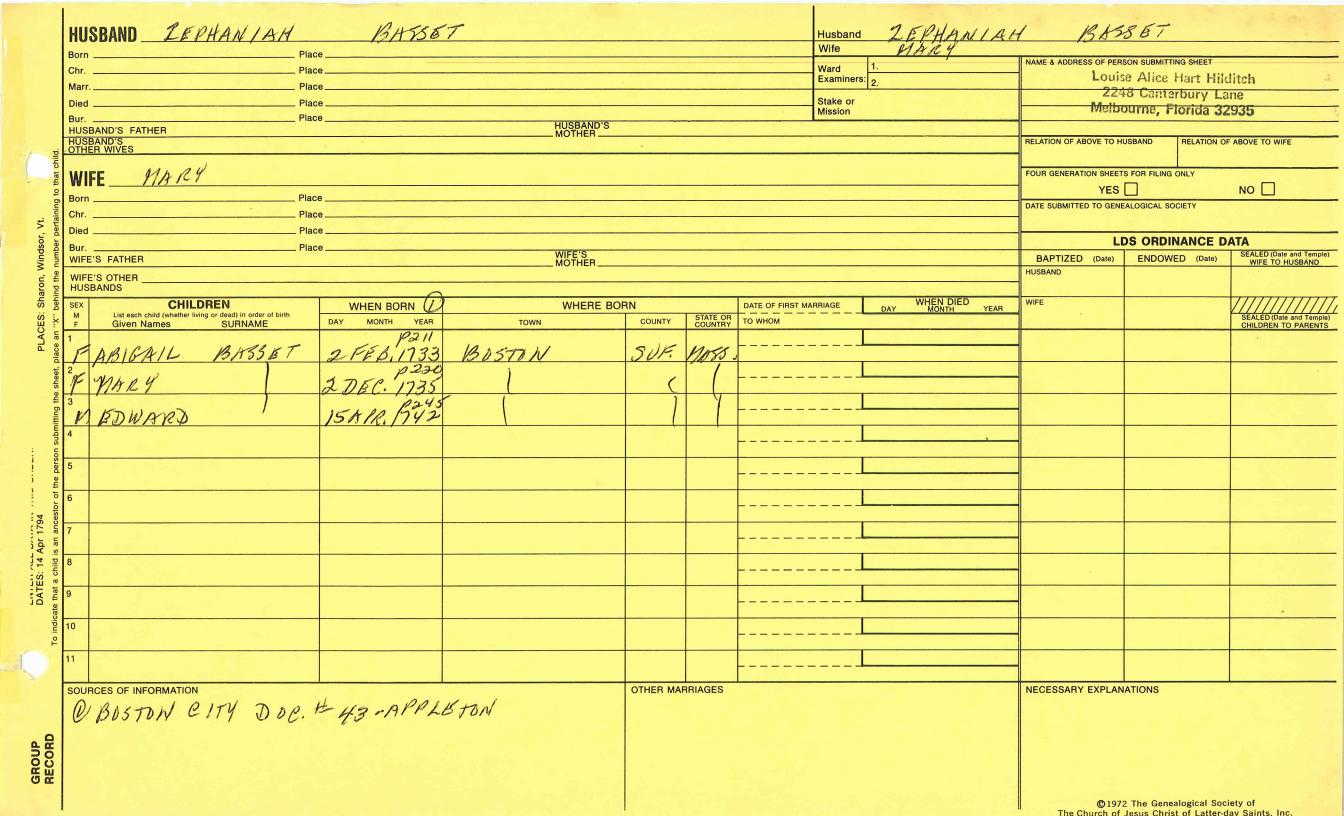 HUSBAND ZEPHANIAH BASSET
Born Place
Chr. Place
Marr. Place
Died Place
Bur. Place
HUSBAND'S FATHER HUSBAND'S MOTHER
HUSBAND'S OTHER WIVES
WIFE MARY
Born Place
Chr. Place
Died Place
Bur. Place
WIFE'S FATHER WIFE'S MOTHER
WIFE'S OTHER HUSBANDS
Husband ZEPHANIAH BASSET
Wife MARY
Ward Examiners: 1.
2.
Stake or Mission
NAME & ADDRESS OF PERSON SUBMITTING SHEET
Louise Alice Hart Hilditch
2248 Canterbury Lane
Melbourne, Florida 32935
RELATION OF ABOVE TO HUSBAND RELATION OF ABOVE TO WIFE
FOUR GENERATION SHEETS FOR FILING ONLY
YES NO
DATE SUBMITTED TO GENEALOGICAL SOCIETY
LDS ORDINANCE DATA
BAPTIZED (Date) ENDOWED (Date) SEALED (Date and Temple) WIFE TO HUSBAND
HUSBAND
WIFE
SEALED (Date and Temple) CHILDREN TO PARENTS
SEX M F
CHILDREN
List each child (whether living or dead) in order of birth
Given Names SURNAME
WHEN BORN ①
DAY MONTH YEAR
WHERE BORN
TOWN COUNTY STATE OR COUNTRY
DATE OF FIRST MARRIAGE
TO WHOM
WHEN DIED
DAY MONTH YEAR
1 P211
F ABIGAIL BASSET 2 FEB. 1733 BOSTON SUF. MASS.
2 P220
F MARY 2 DEC. 1735
3 P245
M EDWARD 15 APR. 1742
4
5
6
7
8
9
10
11
SOURCES OF INFORMATION
① BOSTON CITY DOC. # 43 - APPLETON
OTHER MARRIAGES
NECESSARY EXPLANATIONS
©1972 The Genealogical Society of
The Church of Jesus Christ of Latter-day Saints, Inc.
PLACES: Sharon, Windsor, Vt.
DATES: 14 Apr 1794
To indicate that a child is an ancestor of the person submitting the sheet, place an "X" behind the number pertaining to that child.
GROUP
RECORD